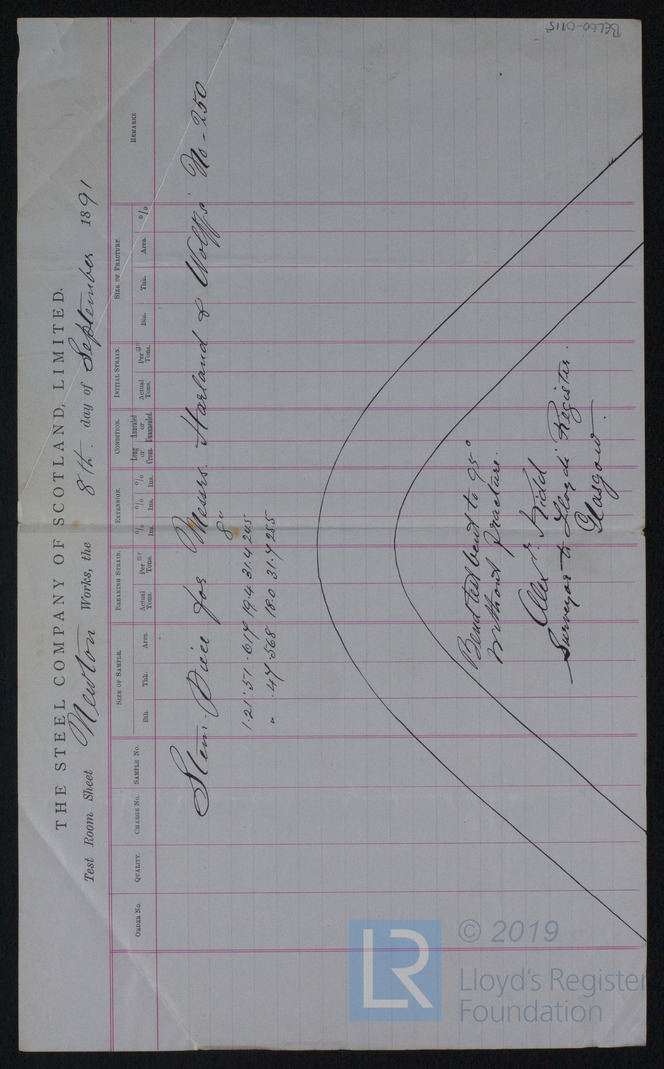 THE STEEL COMPANY OF SCOTLAND, LIMITED.
Test Room Sheet Newton Works, the 8th. day of September 1891
ORDER No. QUALITY. CHARGE No. SAMPLE No. SIZE OF SAMPLE. BREAKING STRAIN. EXTENSION. CONDITION. INITIAL STRAIN. SIZE OF FRACTURE. REMARKS
Bth. Thk. Area. Actual Tons. Per □" Tons. % Ins. % Ins. % Ins. Long or Cross. Annealed or Unannealed. Actual Tons. Per □" Tons. Dia. Thk. Area. %
Stem Piece for Messrs. Harland & Wolff's No - 250
8"
1.21 .51 .617 19.4 31.4 24.5
" .47 .568 18.0 31.7 25.5
Bend test bent to 95°
without fracture.
Alexr. Kidd
Surveyor to Lloyds Register.
Glasgow
BEL60-0115
LR
© 2019
Lloyd's Register
Foundation